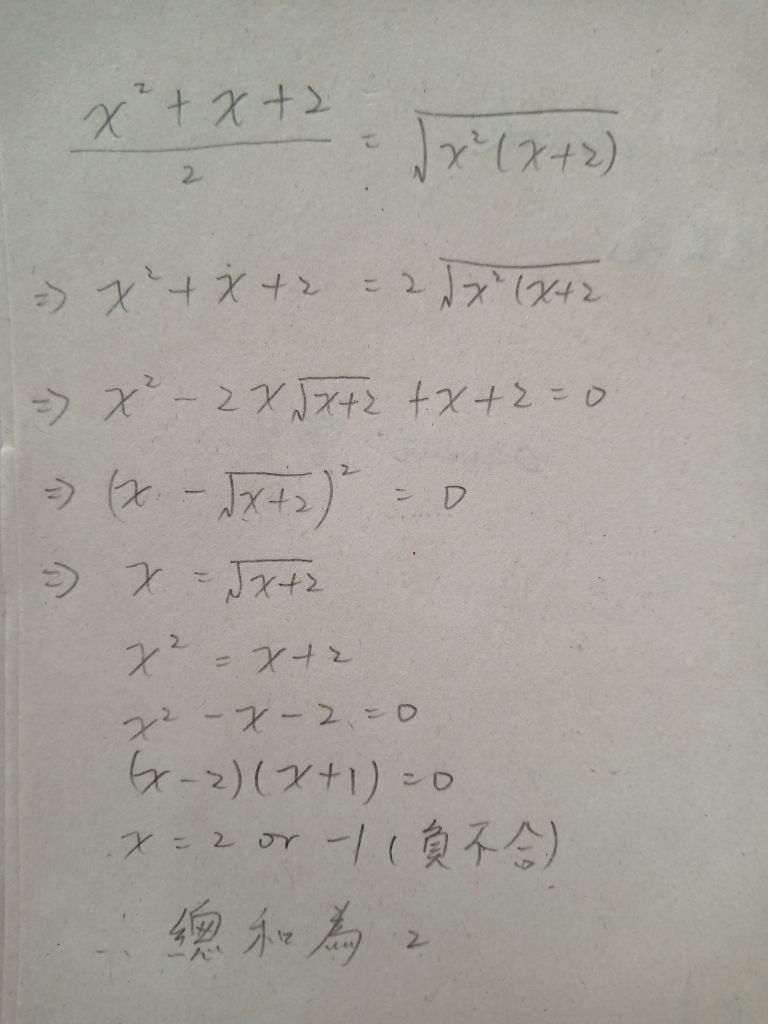 (x²+x+2)/2 = √(x²(x+2))
⇒ x²+x+2 = 2√(x²(x+2
⇒ x²-2x√(x+2)+x+2=0
⇒ (x-√(x+2))²=0
⇒ x=√(x+2)
x²=x+2
x²-x-2=0
(x-2)(x+1)=0
x=2 or -1(負不合)
∴ 總和為 2